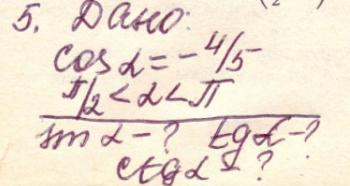 5. Дано:
cos α = - 4/5
π/2 < α < π
sin α - ? tg α - ?
ctg α - ?